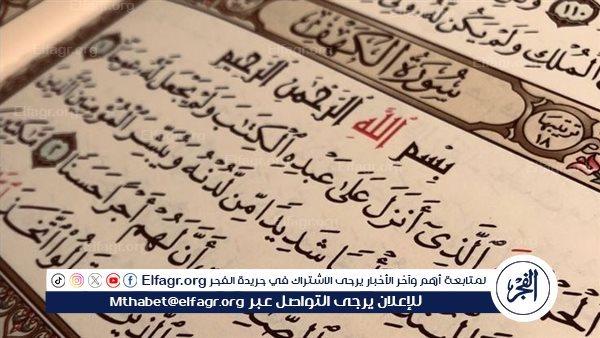 ١١٠
الْمُلْكِ وَلَمْ يَكُن لَّهُ
سُورَةُ الْكَهْفِ
ترتيبها ١٨
بِسْمِ اللَّهِ الرَّحْمَٰنِ الرَّحِيمِ
الَّذِي أَنزَلَ عَلَىٰ عَبْدِهِ الْكِتَابَ وَلَمْ يَجْعَل لَّهُ عِوَجًا
شَدِيدًا مِّن لَّدُنْهُ وَيُبَشِّرَ الْمُؤْمِنِينَ الَّذِينَ
أَنَّ لَهُمْ أَجْرًا حَسَنًا ٢
Elfagr.org
لمتابعة أهم وآخر الأخبار يرجى الاشتراك في جريدة الفجر Elfagr.org
للإعلان يرجى التواصل عبر Mthabet@elfagr.org
الفجر